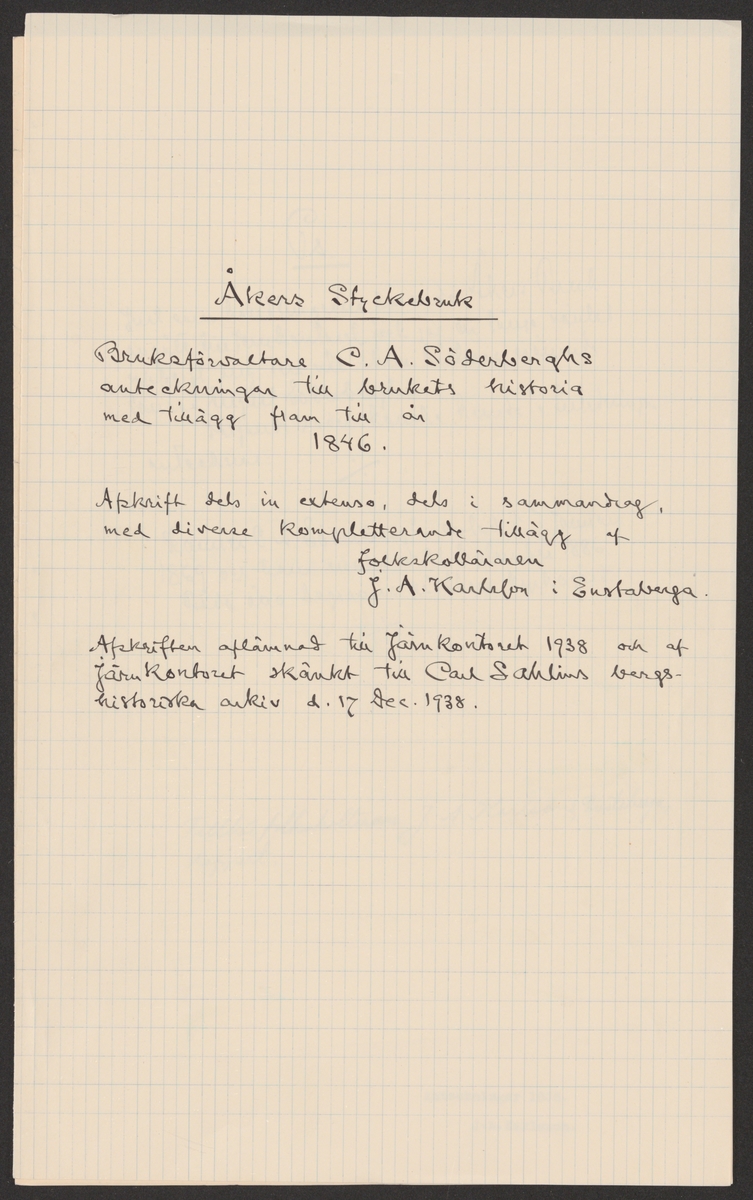 Åkers Styckebruk
Bruksförvaltare C. A. Söderberghs
anteckningar till brukets historia
med tillägg fram till år
1846.
Afskrift dels in extenso, dels i sammandrag,
med diverse kompletterande tillägg af
folkskolläraren
J. A. Karlsson i Enstaberga.
Afskriften aflämnad till Järnkontoret 1938 och af
Järnkontoret skänkt till Carl Sahlins bergs-
historiska arkiv d. 17 Dec. 1938.